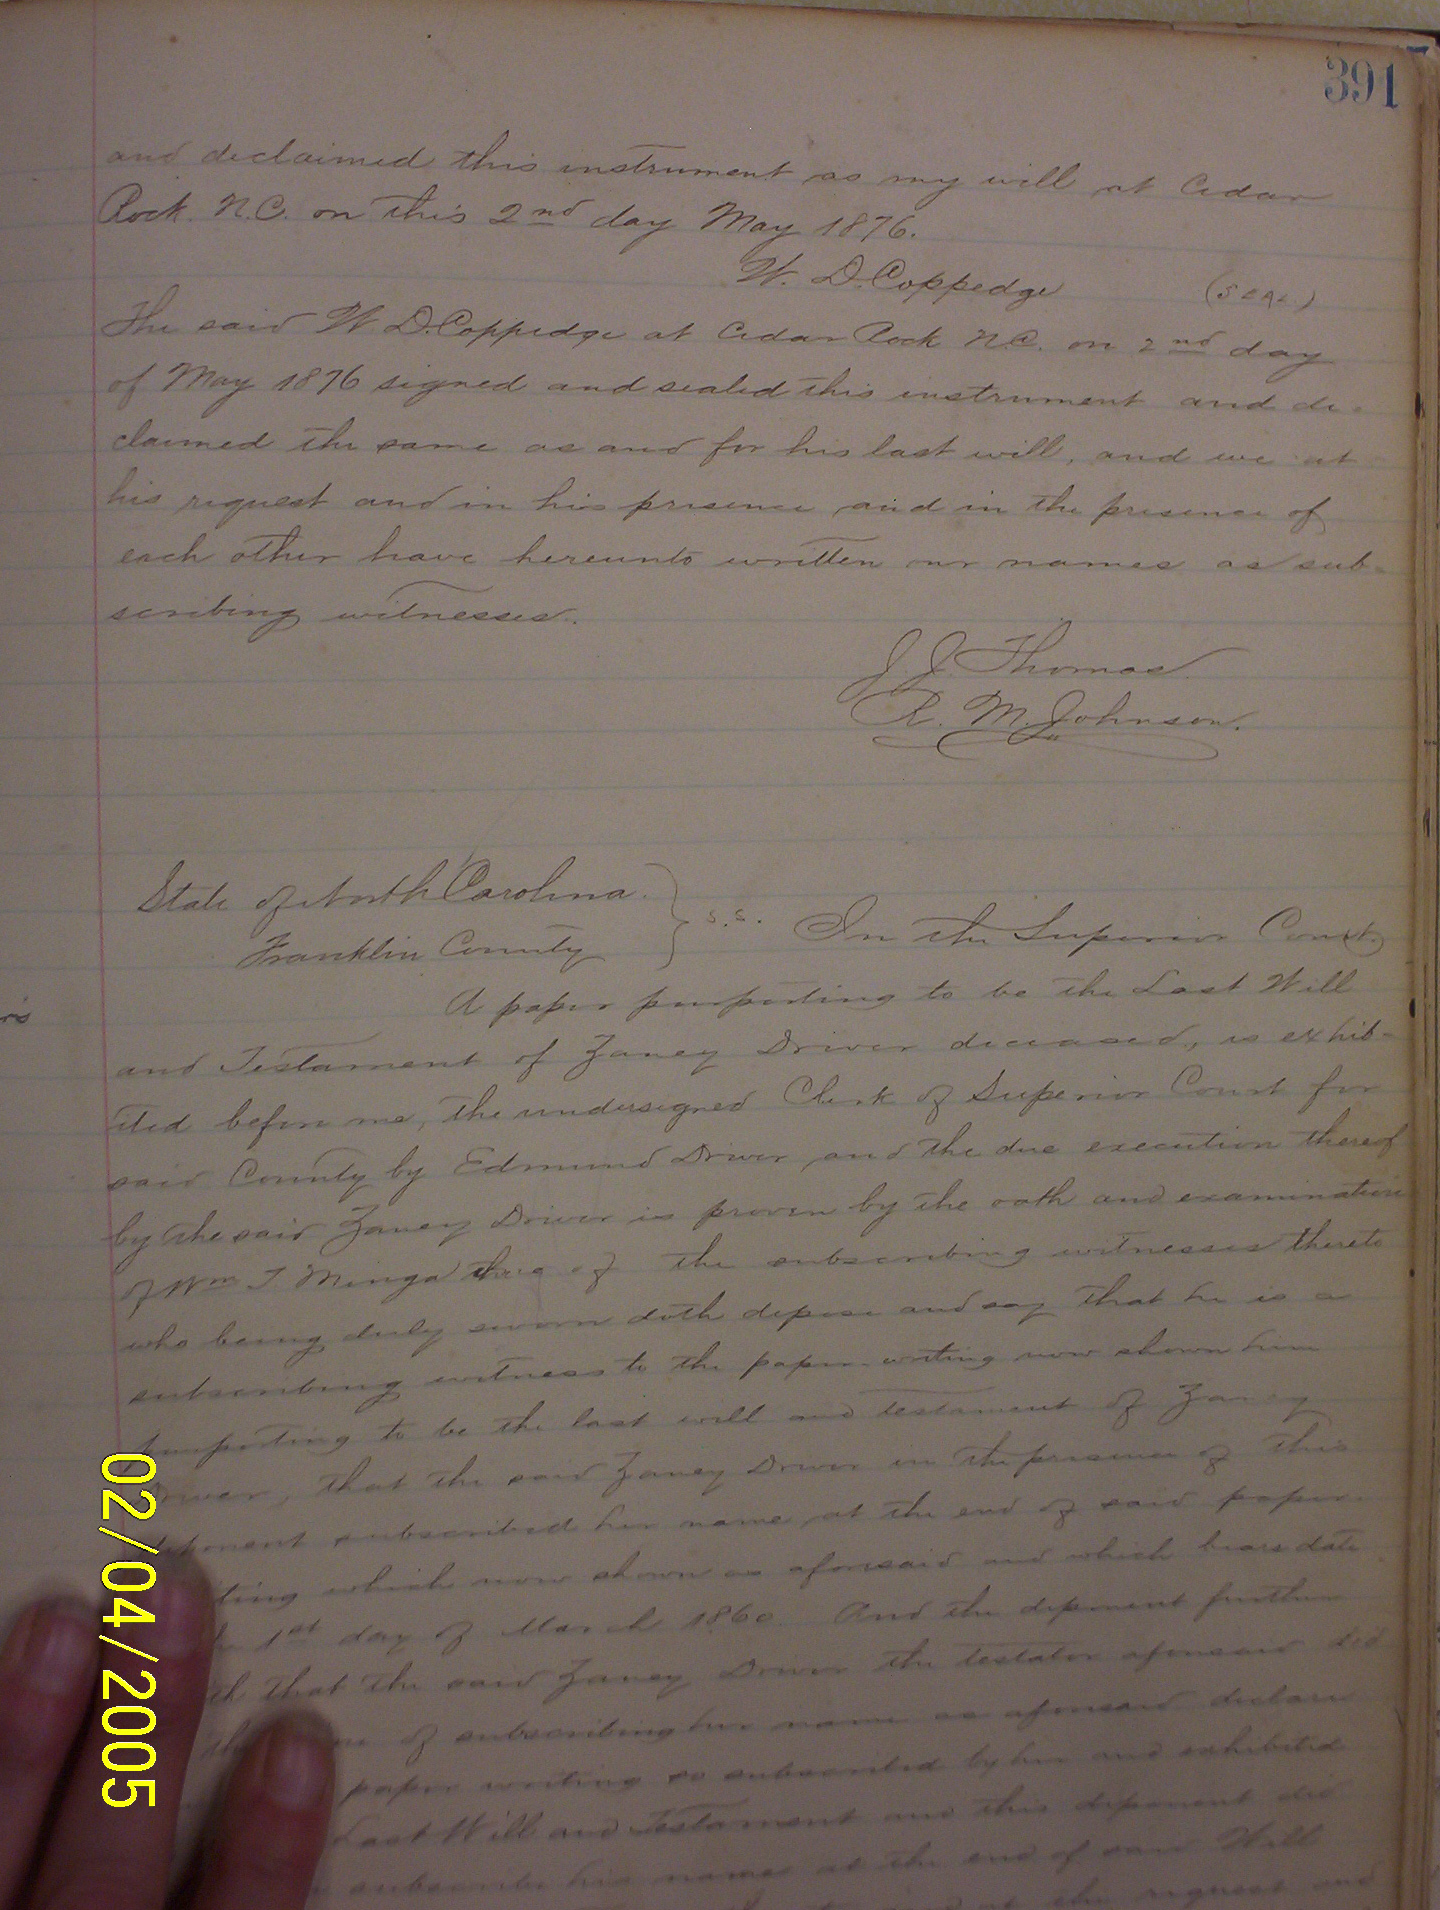 391
and declaimed this instrument as my will at Cedar
Rock. N.C. on this 2nd day May 1876.
W. D. Coppedge (SEAL.)
The said W D. Coppedge at Cedar Rock N.C. on 2nd day
of May 1876 signed and sealed this instrument and de-
claimed the same as and for his last will, and we at
his request and in his presence and in the presence of
each other have hereunto written our names as sub-
scribing witnesses.
J. J. Thomas.
R. M. Johnson.
State of North Carolina. } S.S. In the Superior Court.
Franklin County
A paper purporting to be the Last Will
and Testament of Zaney Driver deceased, is exhib-
ited before me, the undersigned Clerk of Superior Court for
said County by Edmund Driver, and the due execution thereof
by the said Zaney Driver is proven by the oath and examination
of Wm T Minga of the subscribing witnesses thereto
who being duly sworn doth depose and say that he is a
subscribing witness to the paper-writing now shown him
purporting to be the last will and testament of Zaney
Driver, that the said Zaney Driver in the presence of this
deponent subscribed her name at the end of said paper-
ting which now shown as aforesaid and which bears date
1st day of March 1860. And the deponent further
th that the said Zaney Driver the testator aforesaid did
of subscribing her name as aforesaid declare
paper writing so subscribed by her and exhibited
Last Will and Testament and this deponent did
subscribe his name at the end of said Will
at the request and
02/04/2005